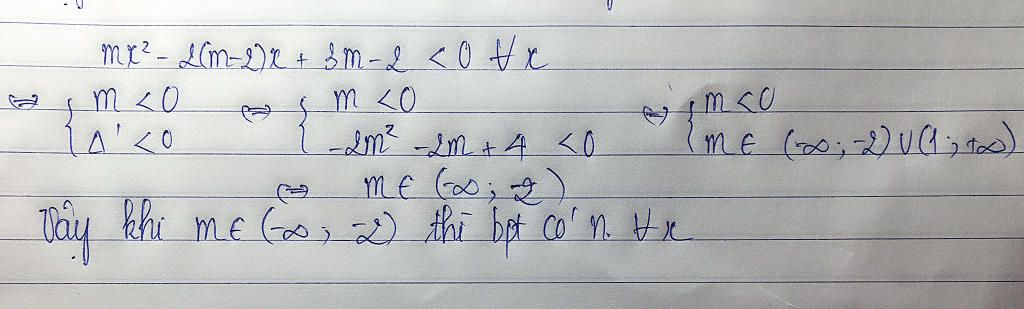 mx² - 2(m-2)x + 3m - 2 < 0 ∀x
⇔ { m < 0 ⇔ { m < 0 ⇔ { m < 0
Δ' < 0 -2m² - 2m + 4 < 0 m ∈ (-∞; -2) ∪ (1; +∞)
⇔ m ∈ (-∞; -2)
Vậy khi m ∈ (-∞; -2) thì bpt có n. ∀x